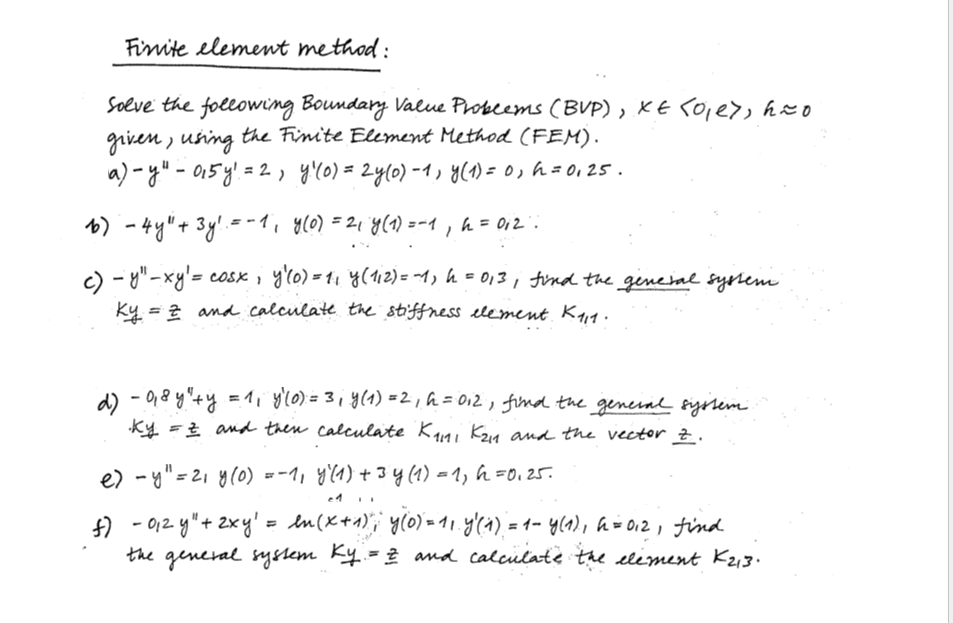 Finite element method:
Solve the following Boundary Value Problems (BVP), x ∈ <0,ℓ>, h≈0
given, using the Finite Element Method (FEM).
a) -y" - 0,5y' = 2, y'(0) = 2y(0) -1, y(1) = 0, h = 0,25.
b) -4y" + 3y' = -1, y(0) = 2, y(1) = -1, h = 0,2.
c) -y" - xy' = cosx, y'(0) = 1, y(1,2) = -1, h = 0,3, find the general system
Ky = z and calculate the stiffness element K1,1.
d) -0,8y"+y = 1, y'(0) = 3, y(1) = 2, h = 0,2, find the general system
Ky = z and then calculate K1,1, K2,1 and the vector z.
e) -y" = 2, y(0) = -1, y'(1) + 3y(1) = 1, h = 0,25.
f) -0,2y" + 2xy' = ln(x+1), y(0) = 1, y'(1) = 1 - y(1), h = 0,2, find
the general system Ky = z and calculate the element K2,3.